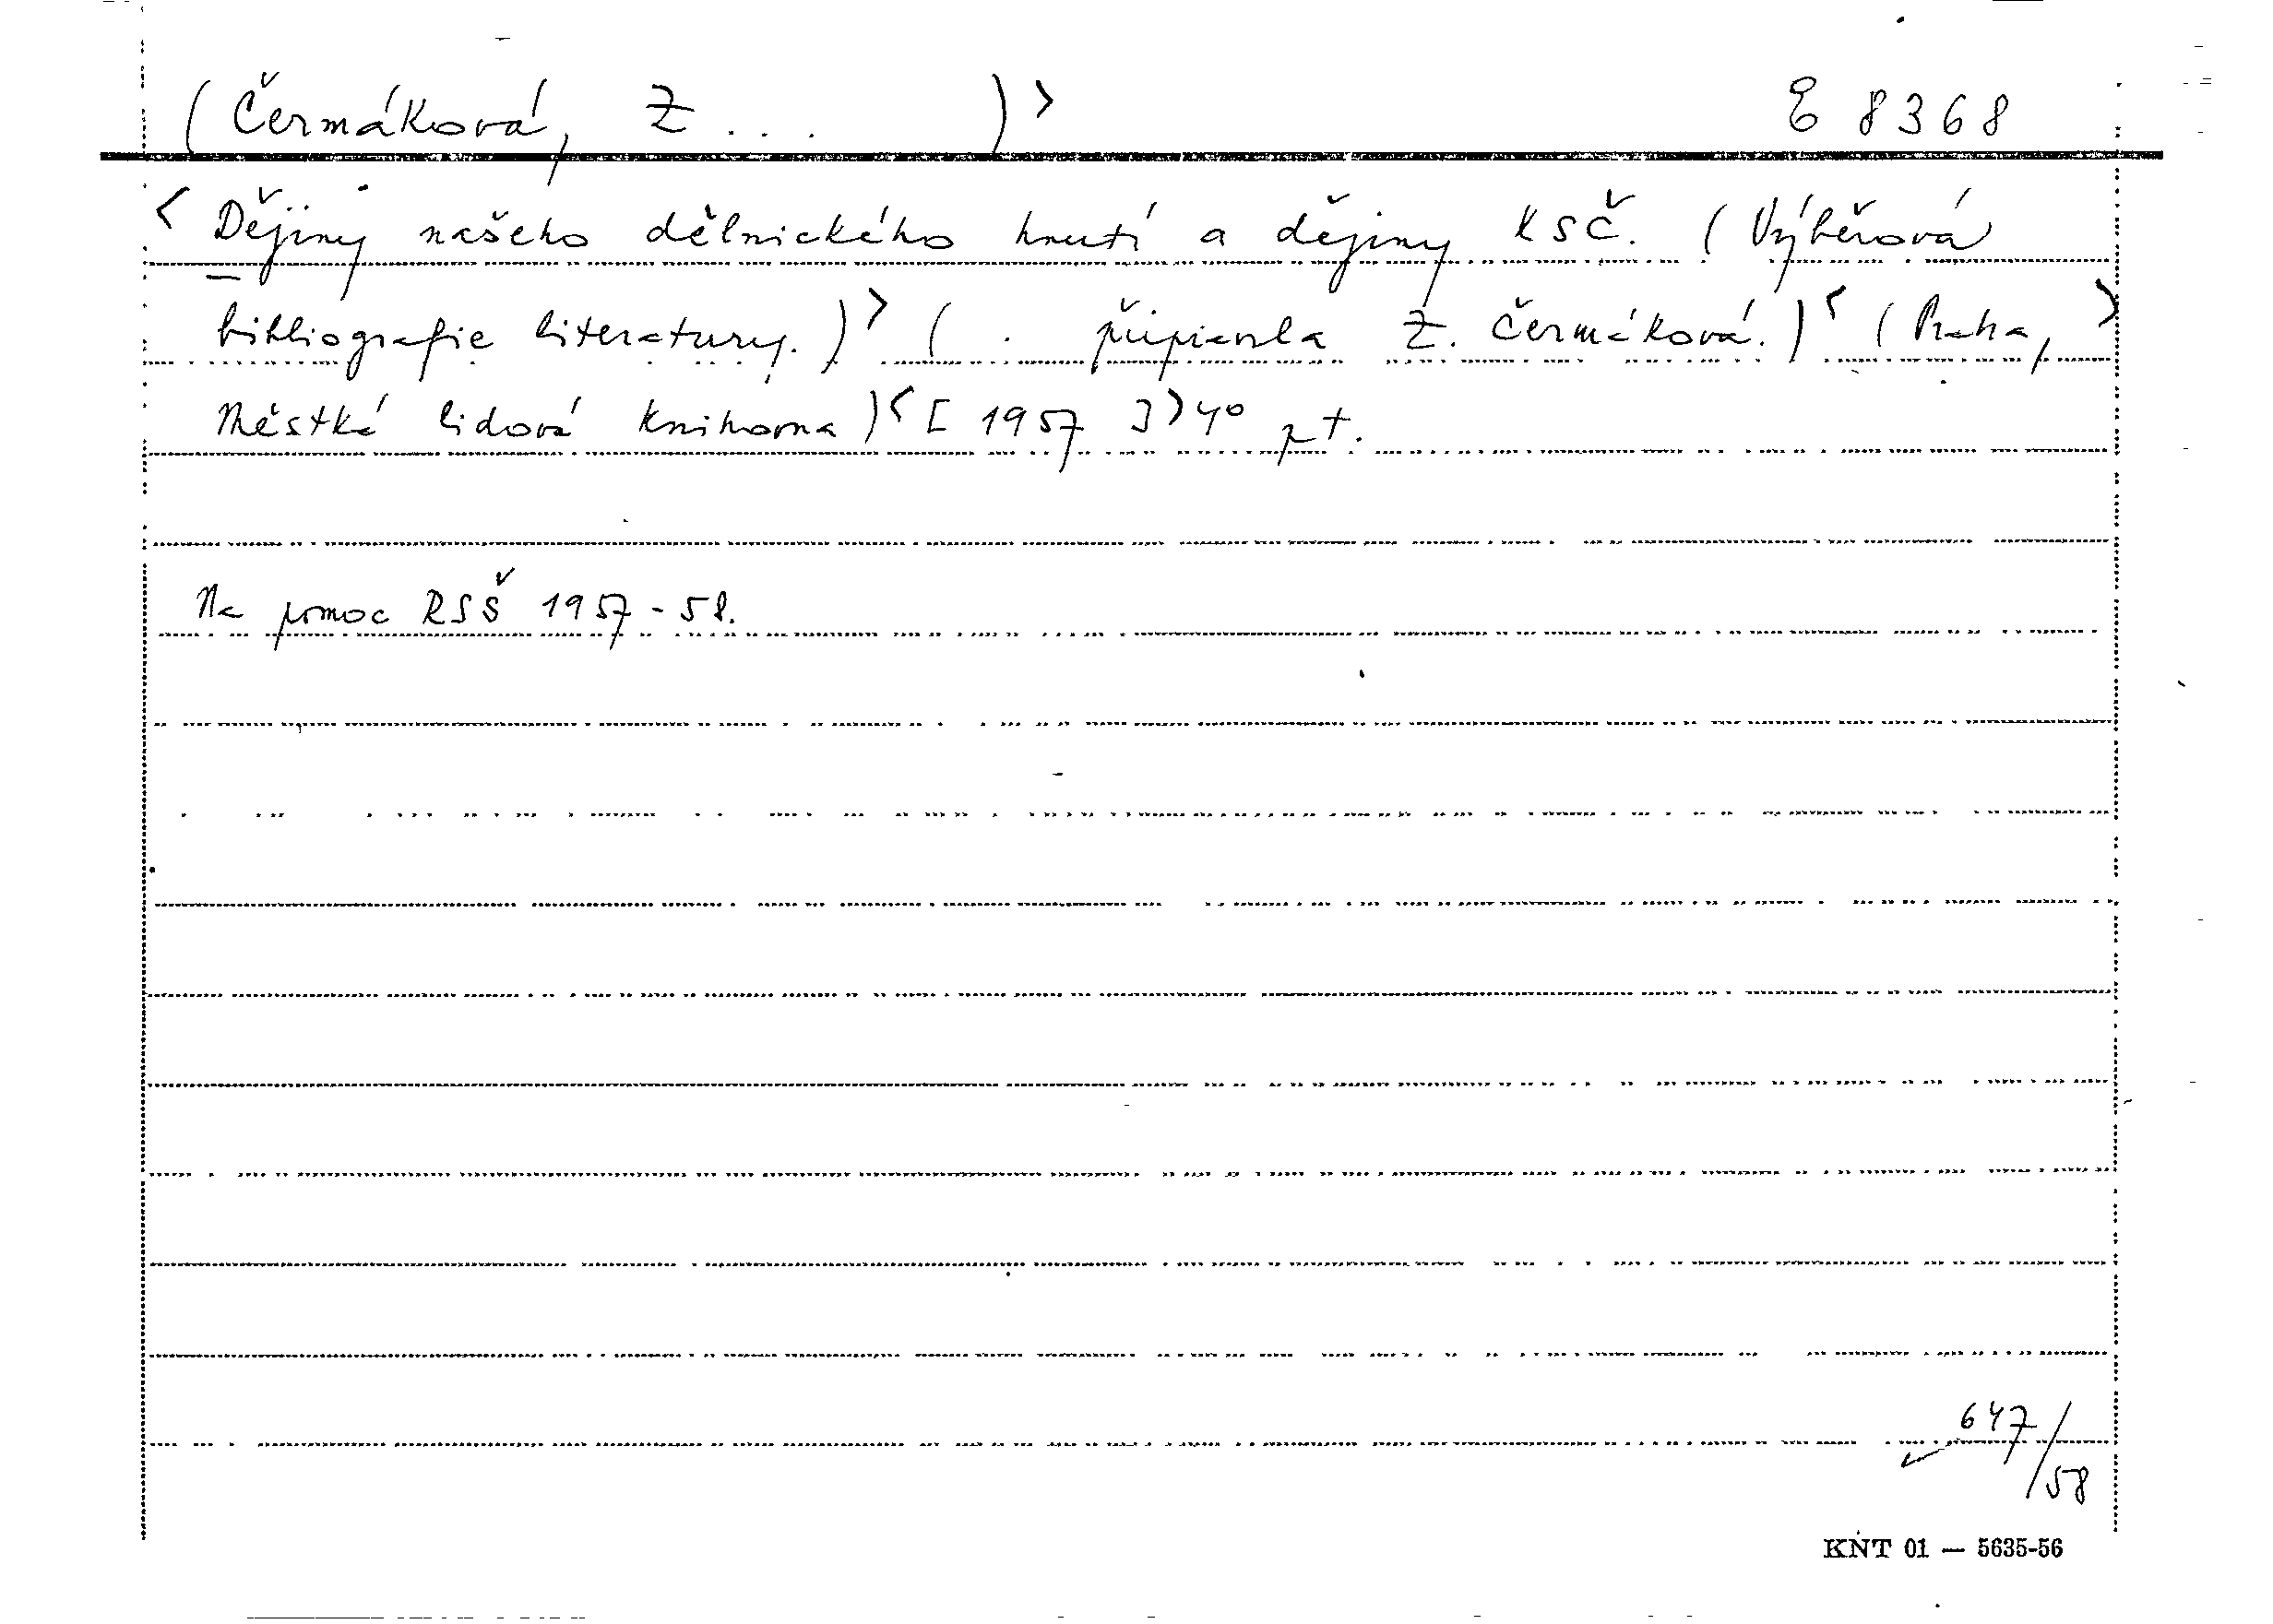 (Čermáková, Z... )> E 8368
< Dějiny našeho dělnického hnutí a dějiny KSČ. (Výběrová
bibliografie literatury.)> ( . připravila Z. Čermáková.)< (Praha,>
Městká lidová knihovna)< [1957]> 4°
Na pomoc RSŠ 1957-58.
647/58
KNT 01 — 5635-56